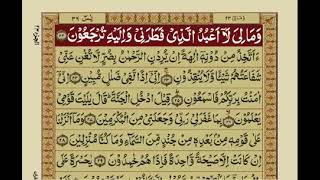 وَمَا لِيَ لَآ اَعْبُدُ الَّذِيْ فَطَرَنِيْ وَاِلَيْهِ تُرْجَعُوْنَ
ءَاَتَّخِذُ مِنْ دُوْنِهٖٓ اٰلِهَةً اِنْ يُّرِدْنِ الرَّحْمٰنُ بِضُرٍّ لَّا تُغْنِ عَنِّيْ
شَفَاعَتُهُمْ شَيْـًٔا وَّلَا يُنْقِذُوْنِ اِنِّيْٓ اِذًا لَّفِيْ ضَلٰلٍ مُّبِيْنٍ اِنِّيْٓ
اٰمَنْتُ بِرَبِّكُمْ فَاسْمَعُوْنِ قِيْلَ ادْخُلِ الْجَنَّةَ قَالَ يٰلَيْتَ قَوْمِيْ
يَعْلَمُوْنَ بِمَا غَفَرَ لِيْ رَبِّيْ وَجَعَلَنِيْ مِنَ الْمُكْرَمِيْنَ وَمَآ اَنْزَلْنَا
عَلٰى قَوْمِهٖ مِنْۢ بَعْدِهٖ مِنْ جُنْدٍ مِّنَ السَّمَآءِ وَمَا كُنَّا مُنْزِلِيْنَ
اِنْ كَانَتْ اِلَّا صَيْحَةً وَّاحِدَةً فَاِذَا هُمْ خٰمِدُوْنَ يٰحَسْرَةً عَلَى